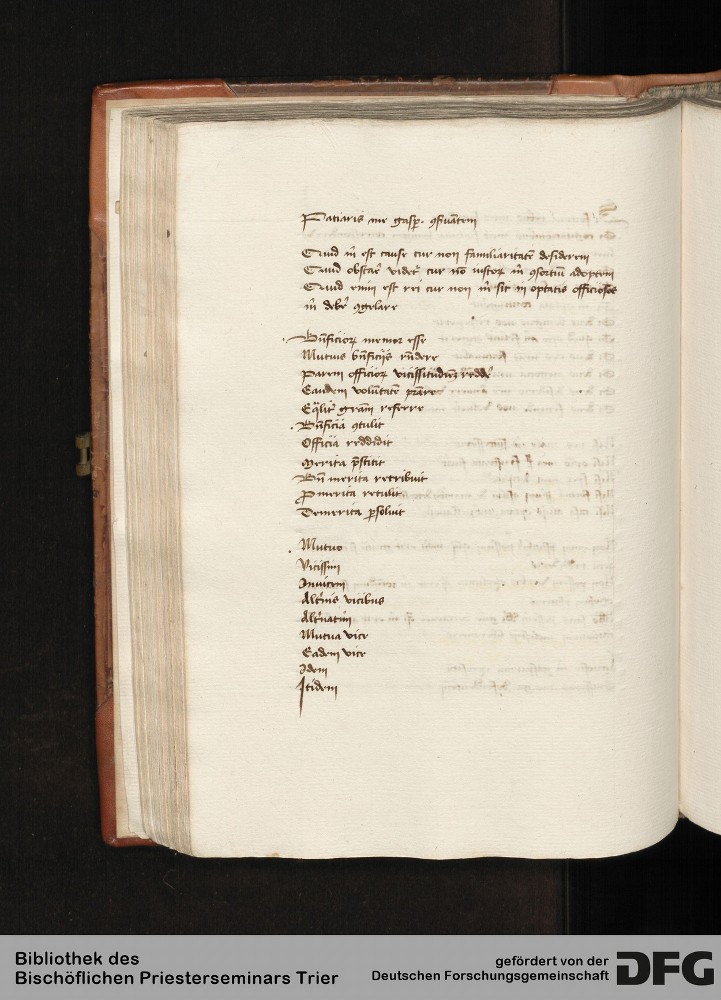 Patiaris me gasp. 9suatem
Quid m est cause cur non familiaritate desiderem
Quid obstare videt cur no vestor m 9sortiu adoptem
Quid enim est rei cur non m sit in optatis officiose
m debe 9gelare
Bnficior memor esse
Mutuis bnficijs rndere
Parem officior vicissitudinem redde
Eandem volutate prare
Eqlit gram referre
Bnficia 9tulit
Officia reddidit
Merita pstitit
Bn merita retribuit
Pmerita retulit
Demerita psoluit
Mutuo
Vicissim
Inuicem
Altnis vicibus
Altnatim
Mutua vice
Eadem vice
Idem
Itidem
Bibliothek des
Bischöflichen Priesterseminars Trier
gefördert von der
Deutschen Forschungsgemeinschaft
DFG